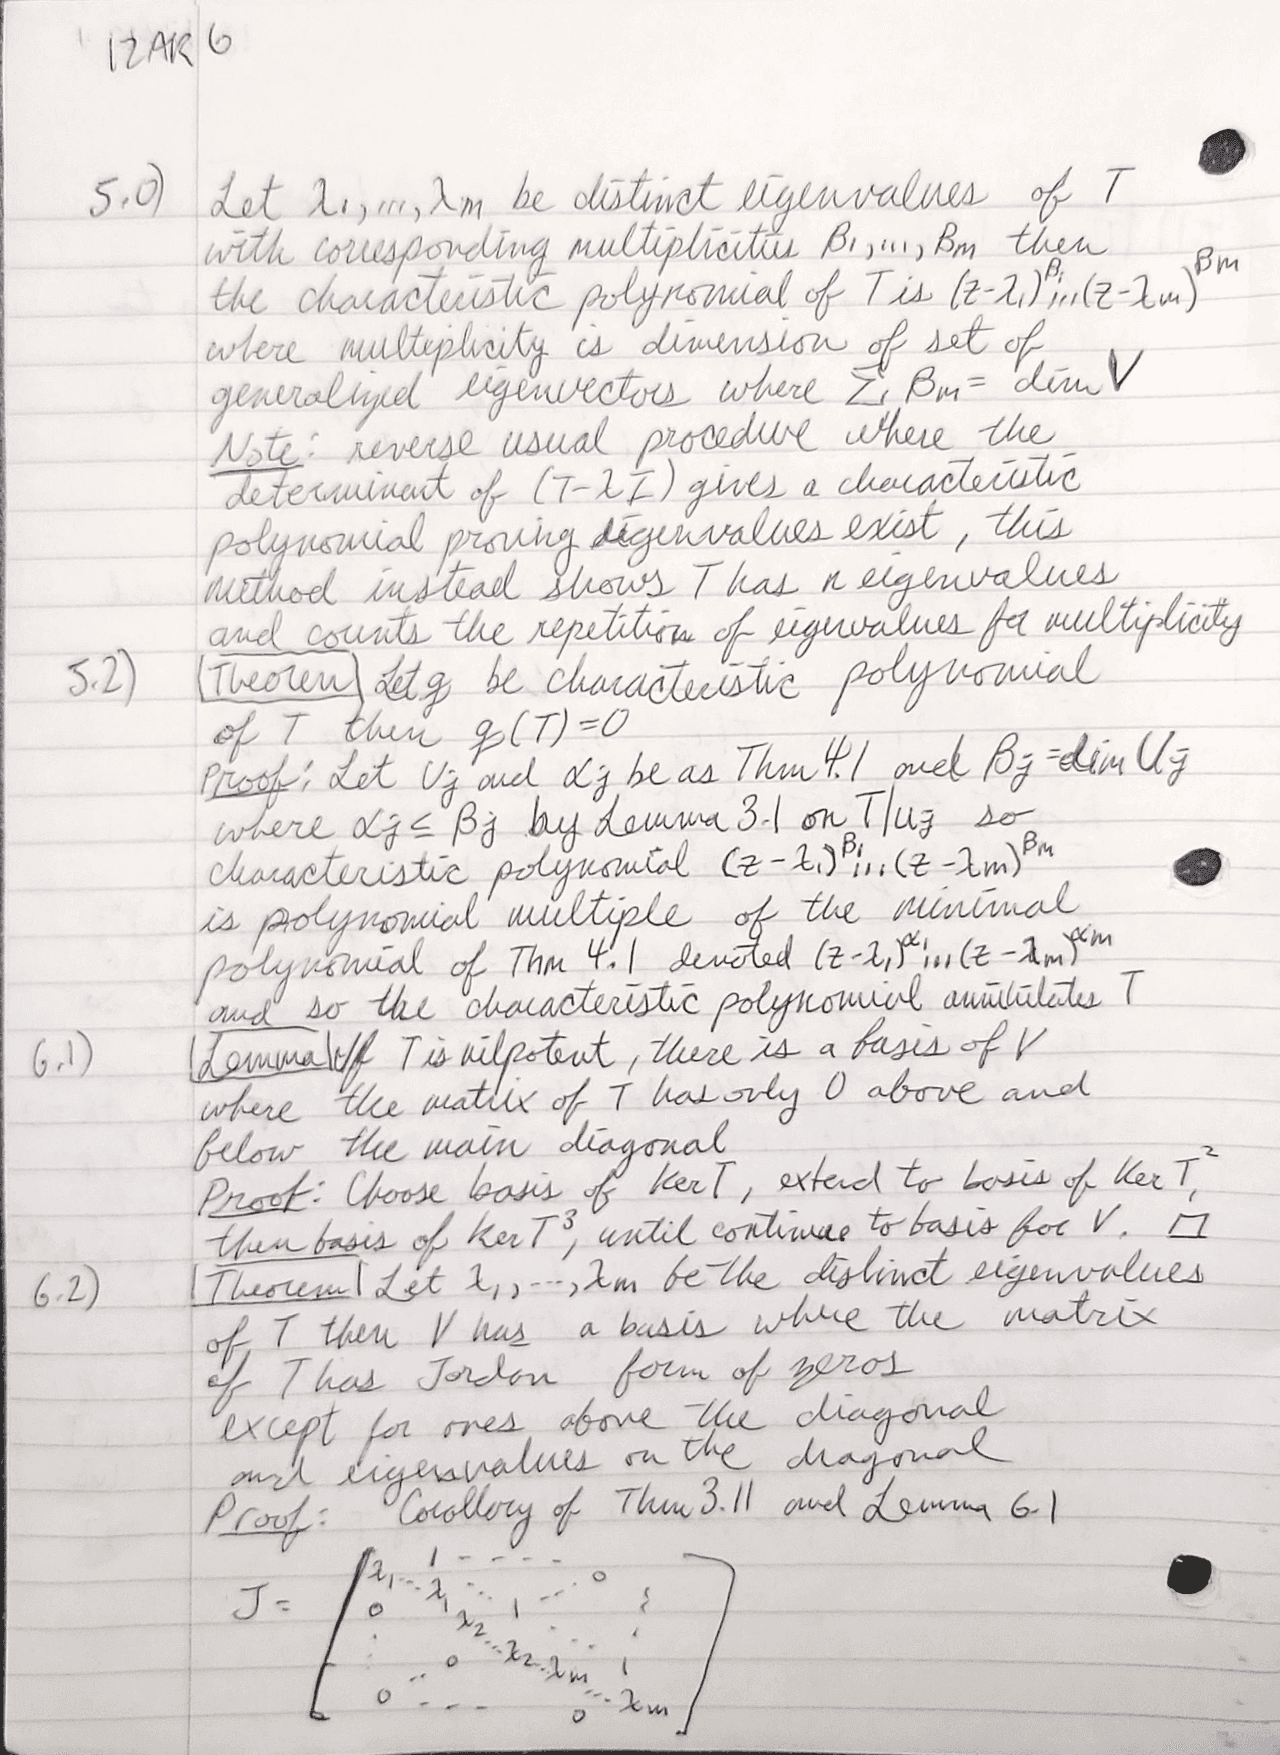 IZAR 6
5.0) Let λ1,...,λm be distinct eigenvalues of T
with corresponding multiplicities β1,...,βm then
the characteristic polynomial of T is (z-λ1)^β1...(z-λm)^βm
where multiplicity is dimension of set of
generalized eigenvectors where Σ βm = dim V
Note: reverse usual procedure where the
determinant of (T-λI) gives a characteristic
polynomial proving eigenvalues exist, this
method instead shows T has n eigenvalues
and counts the repetition of eigenvalues for multiplicity
5.2) Theorem Let q be characteristic polynomial
of T then q(T)=0
Proof: Let Uj and αj be as Thm 4.1 and βj = dim Uj
where αj ≤ βj by Lemma 3.1 on T|Uj so
characteristic polynomial (z-λ1)^β1...(z-λm)^βm
is polynomial multiple of the minimal
polynomial of Thm 4.1 denoted (z-λ1)^α1...(z-λm)^αm
and so the characteristic polynomial annihilates T
6.1) Lemma If T is nilpotent, there is a basis of V
where the matrix of T has only 0 above and
below the main diagonal
Proof: Choose basis of Ker T, extend to basis of Ker T^2,
then basis of Ker T^3, until continue to basis for V. □
6.2) Theorem Let λ1,---,λm be the distinct eigenvalues
of T then V has a basis where the matrix
of T has Jordan form of zeros
except for ones above the diagonal
and eigenvalues on the diagonal
Proof: Corollory of Thm 3.11 and Lemma 6.1
1 - - - -
λ1 ... λ1 ... 0
J = 0 λ2 1
0 ... λ2 ... λm 1
0 - - - 0 ... λm